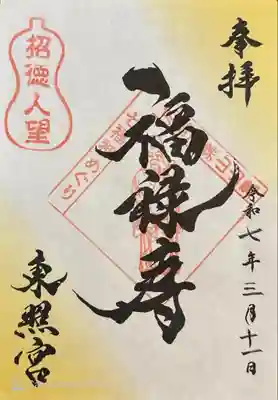 奉拝
令和七年三月十一日
福禄寿
招徳人望
めぐり
東照宮